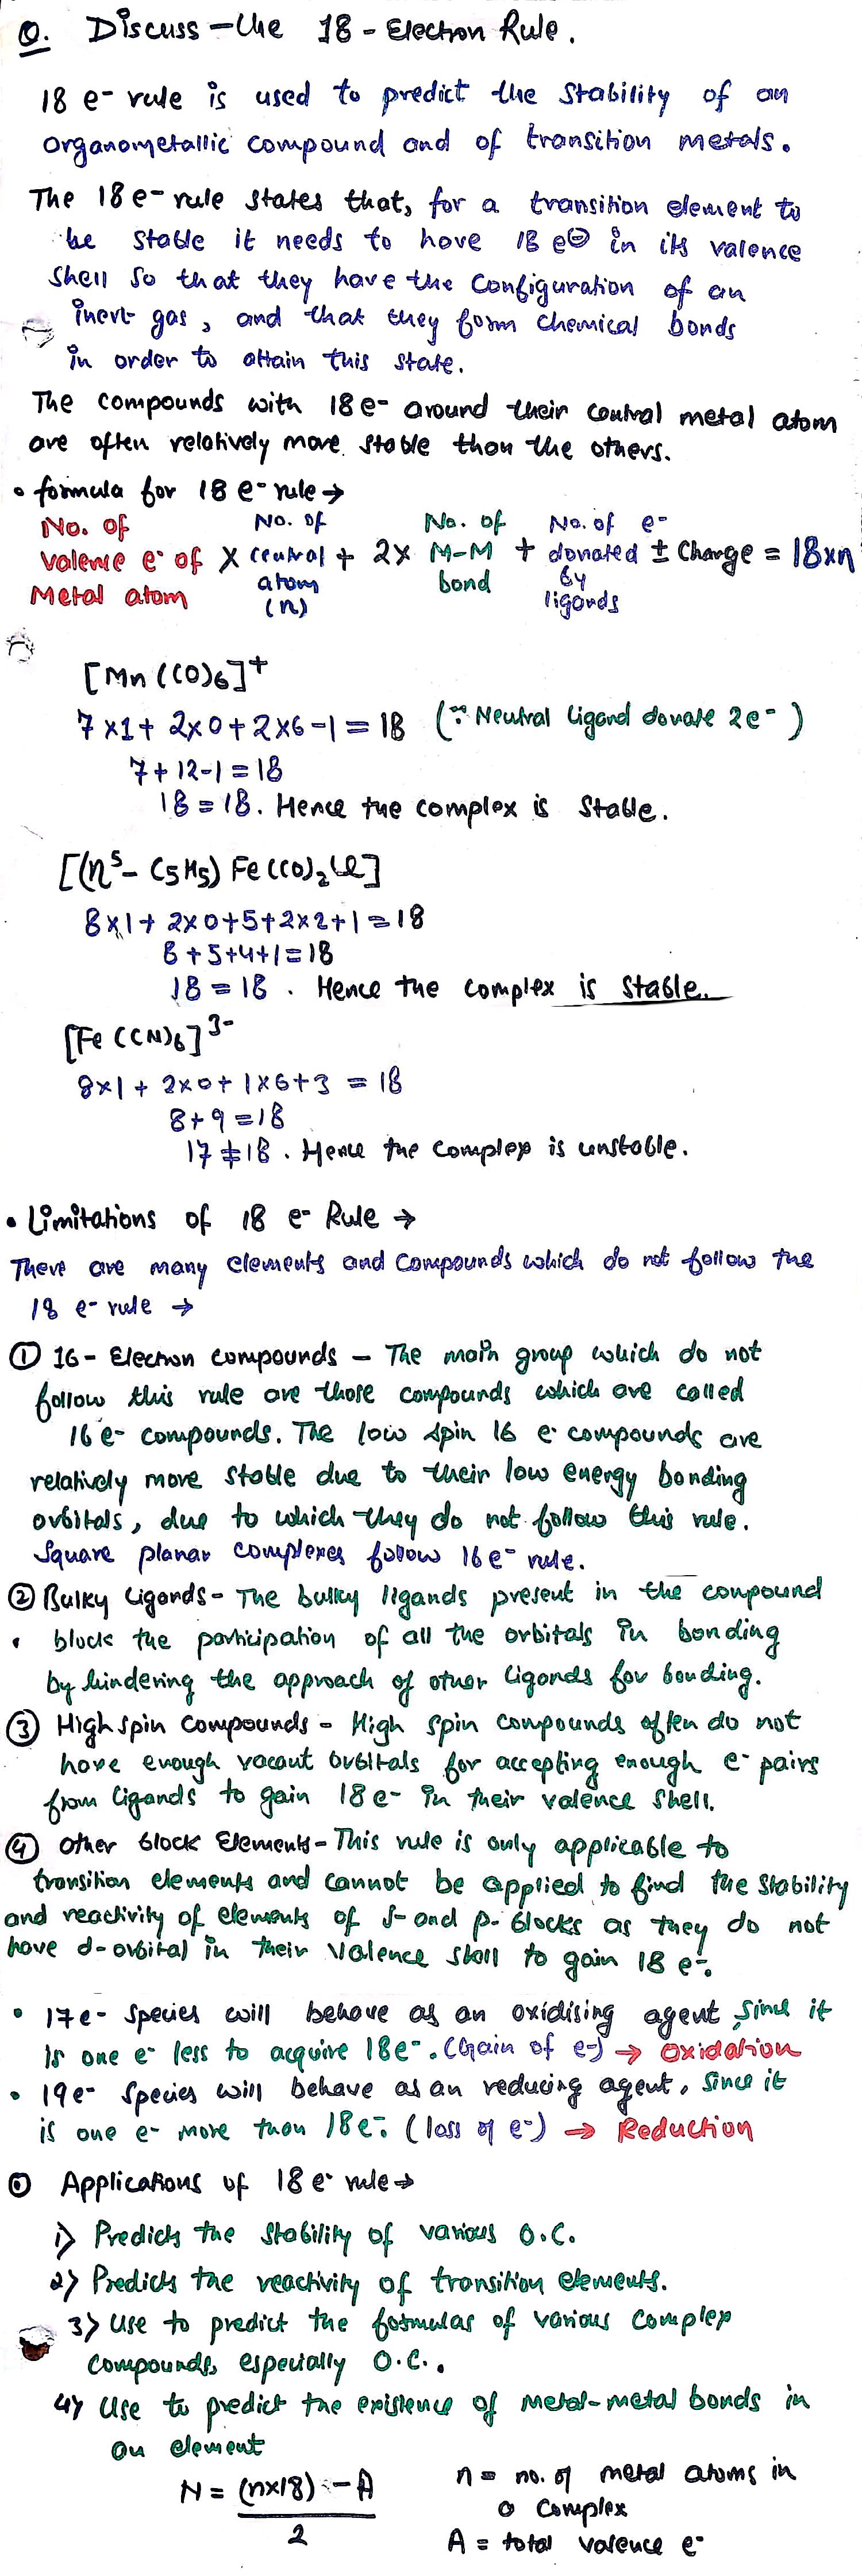 Q. Discuss the 18-Electron Rule.
18 e- rule is used to predict the stability of an
organometallic compound and of transition metals.
The 18 e- rule states that, for a transition element to
be stable it needs to have 18 e⊖ in its valence
shell so that they have the configuration of an
inert gas, and that they form chemical bonds
in order to attain this state.
The compounds with 18 e- around their central metal atom
are often relatively more stable than the others.
• formula for 18 e- rule →
No. of valence e- of Metal atom × No. of central atom (n) + 2× No. of M-M bond + No. of e- donated by ligands ± Charge = 18×n
[Mn(CO)6]+
7×1+ 2×0+2×6-1 = 18 (∵ Neutral ligand donate 2e-)
7+12-1=18
18=18. Hence the complex is stable.
[(η5-C5H5) Fe(CO)2Cl]
8×1+ 2×0+5+2×2+1=18
8+5+4+1=18
18=18. Hence the complex is stable.
[Fe(CN)6]3-
8×1+ 2×0+ 1×6+3 = 18
8+9=18
17≠18. Hence the complex is unstable.
• Limitations of 18 e- Rule →
There are many elements and compounds which do not follow the
18 e- rule →
① 16-Electron compounds - The main group which do not
follow this rule are those compounds which are called
16 e- compounds. The low spin 16 e- compounds are
relatively more stable due to their low energy bonding
orbitals, due to which they do not follow this rule.
Square planar complexes follow 16 e- rule.
② Bulky ligands - The bulky ligands present in the compound
block the participation of all the orbitals in bonding
by hindering the approach of other ligands for bonding.
③ High spin compounds - High spin compounds often do not
have enough vacant orbitals for accepting enough e- pairs
from ligands to gain 18 e- in their valence shell.
④ Other block Elements - This rule is only applicable to
transition elements and cannot be applied to find the stability
and reactivity of elements of s- and p-blocks as they do not
have d-orbital in their valence shell to gain 18 e-.
• 17e- species will behave as an oxidising agent, since it
is one e- less to acquire 18e-. (Gain of e-) → Oxidation
• 19e- species will behave as an reducing agent, since it
is one e- more than 18e-. (loss of e-) → Reduction
⊙ Applications of 18 e- rule →
1) Predicts the stability of various O.C.
2) Predicts the reactivity of transition elements.
3) Use to predict the formulas of various complex
compounds, especially O.C..
4) Use to predict the existence of metal-metal bonds in
an element
N = (n×18) - A / 2
n = no. of metal atoms in
a complex
A = total valence e-